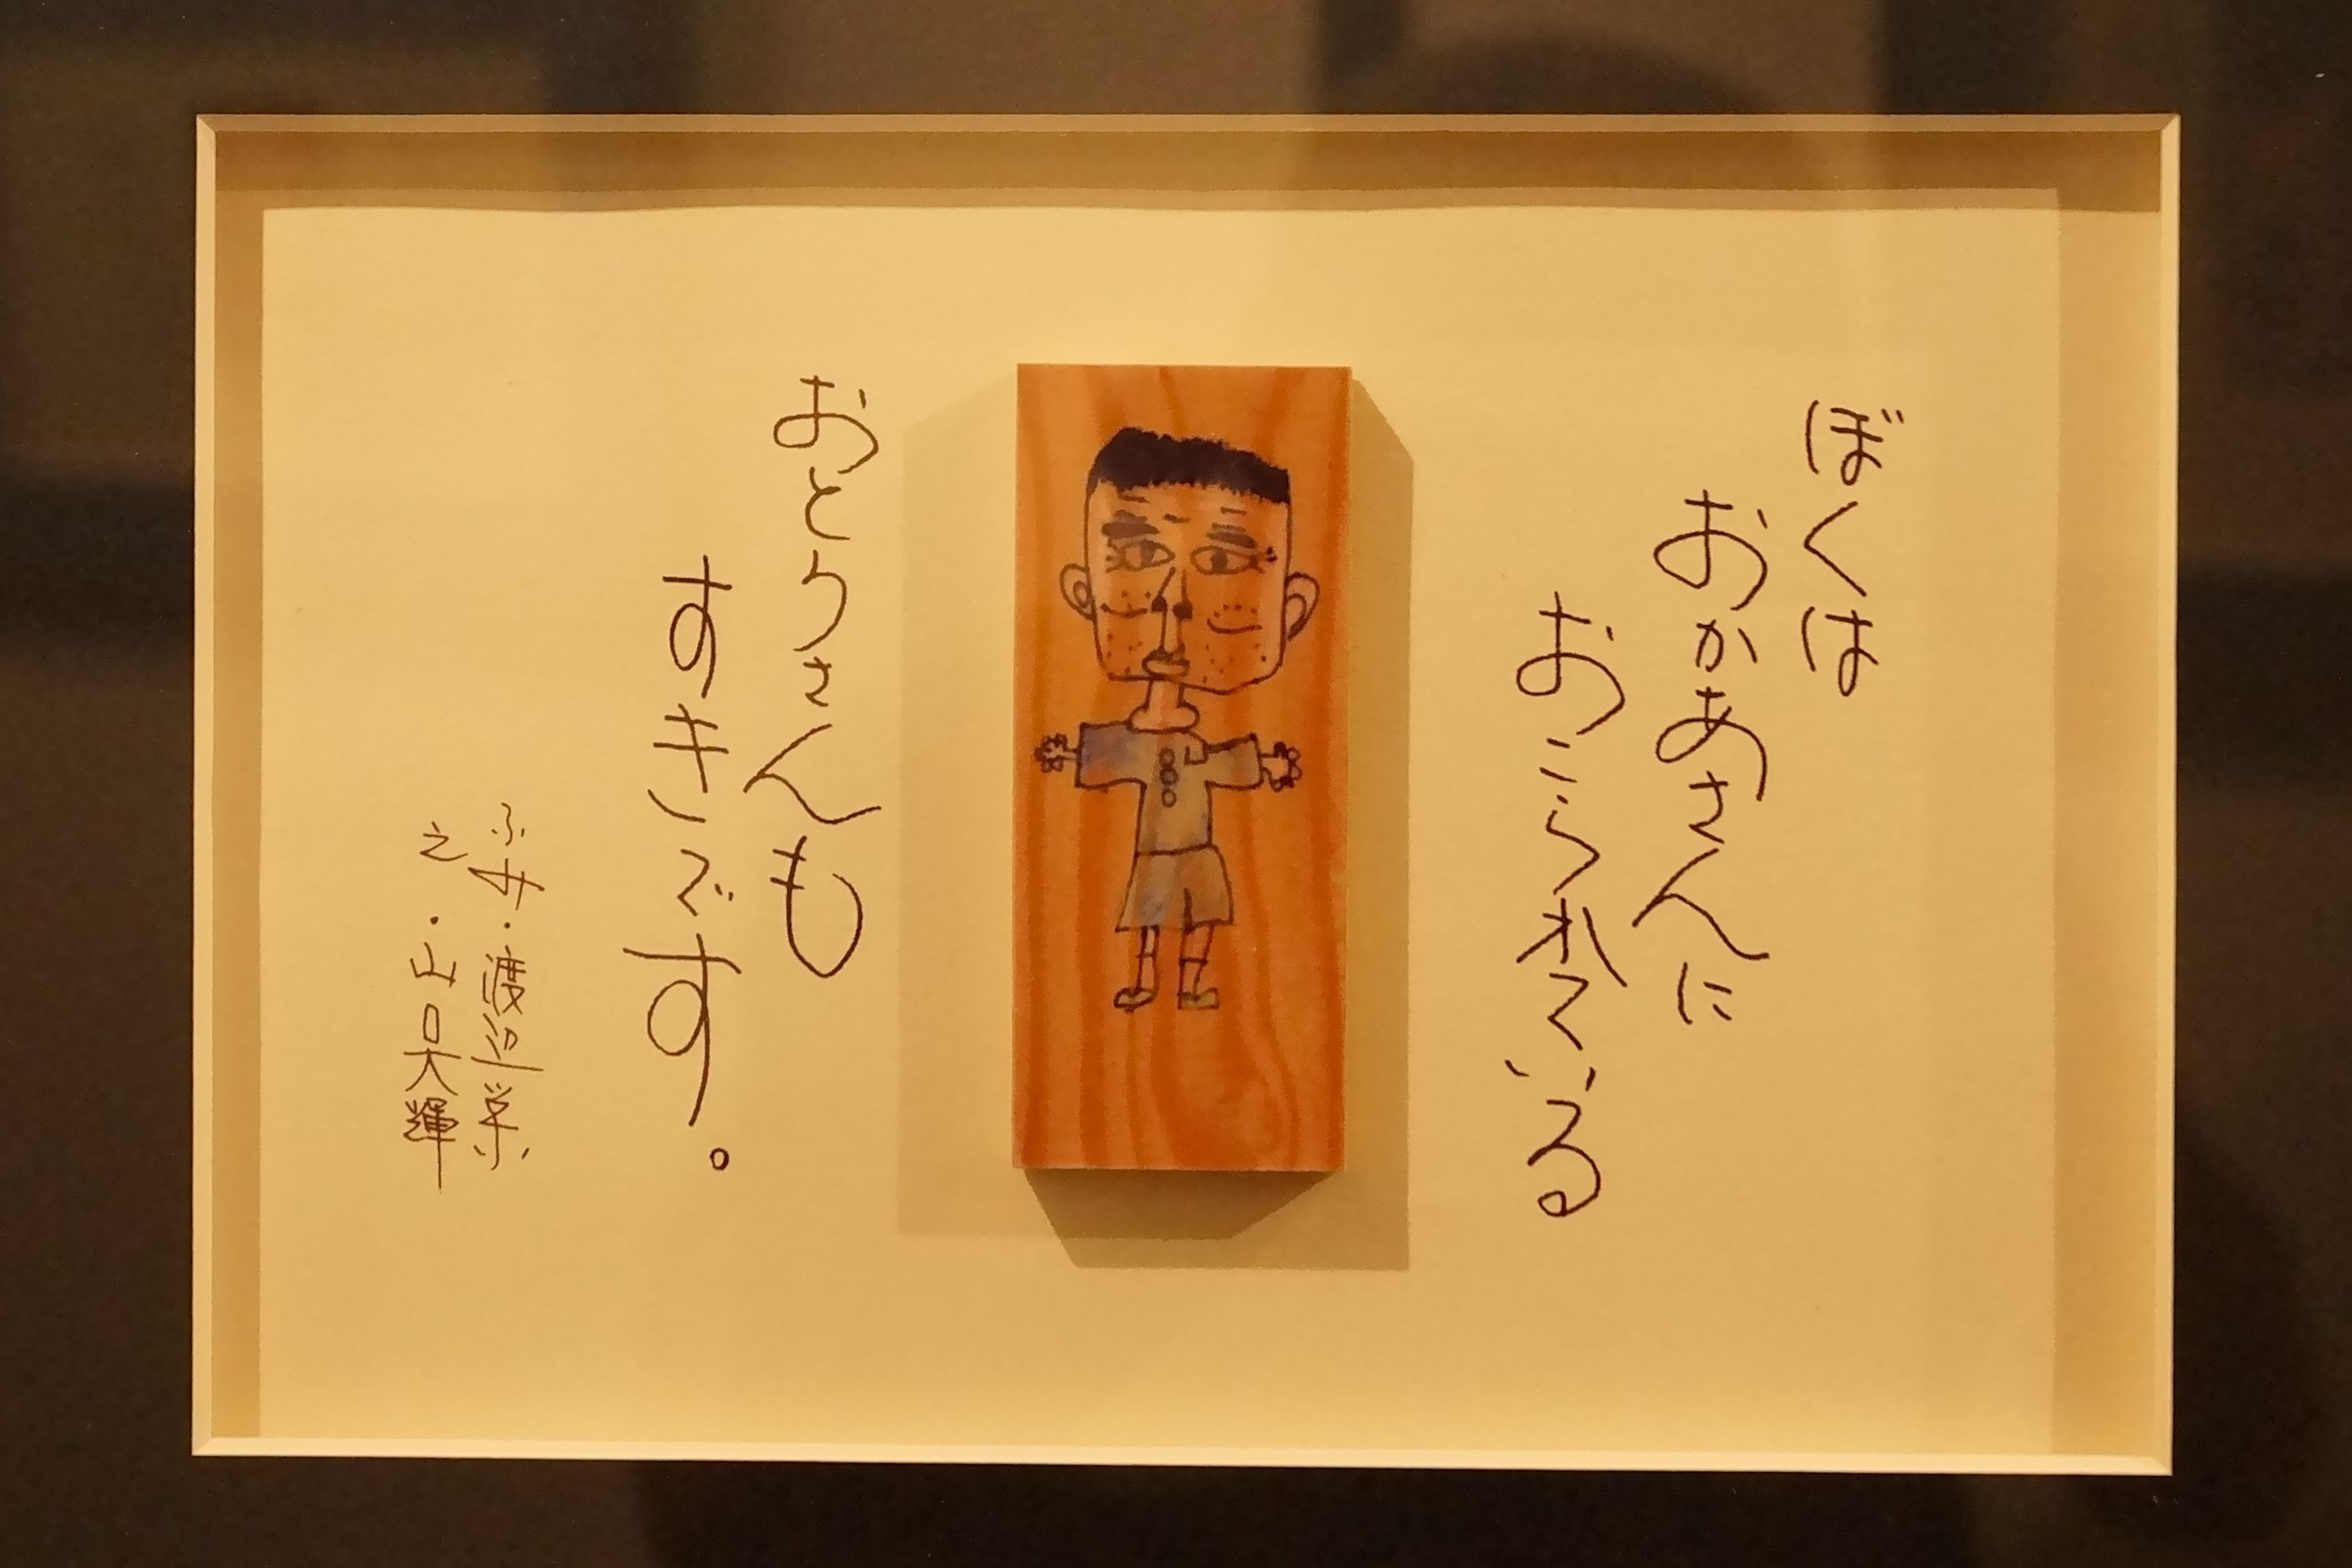 ぼくは
おかあさんに
おこられている
おとうさんも
すきです。
ふみ・渡辺栄
え・山口大輝